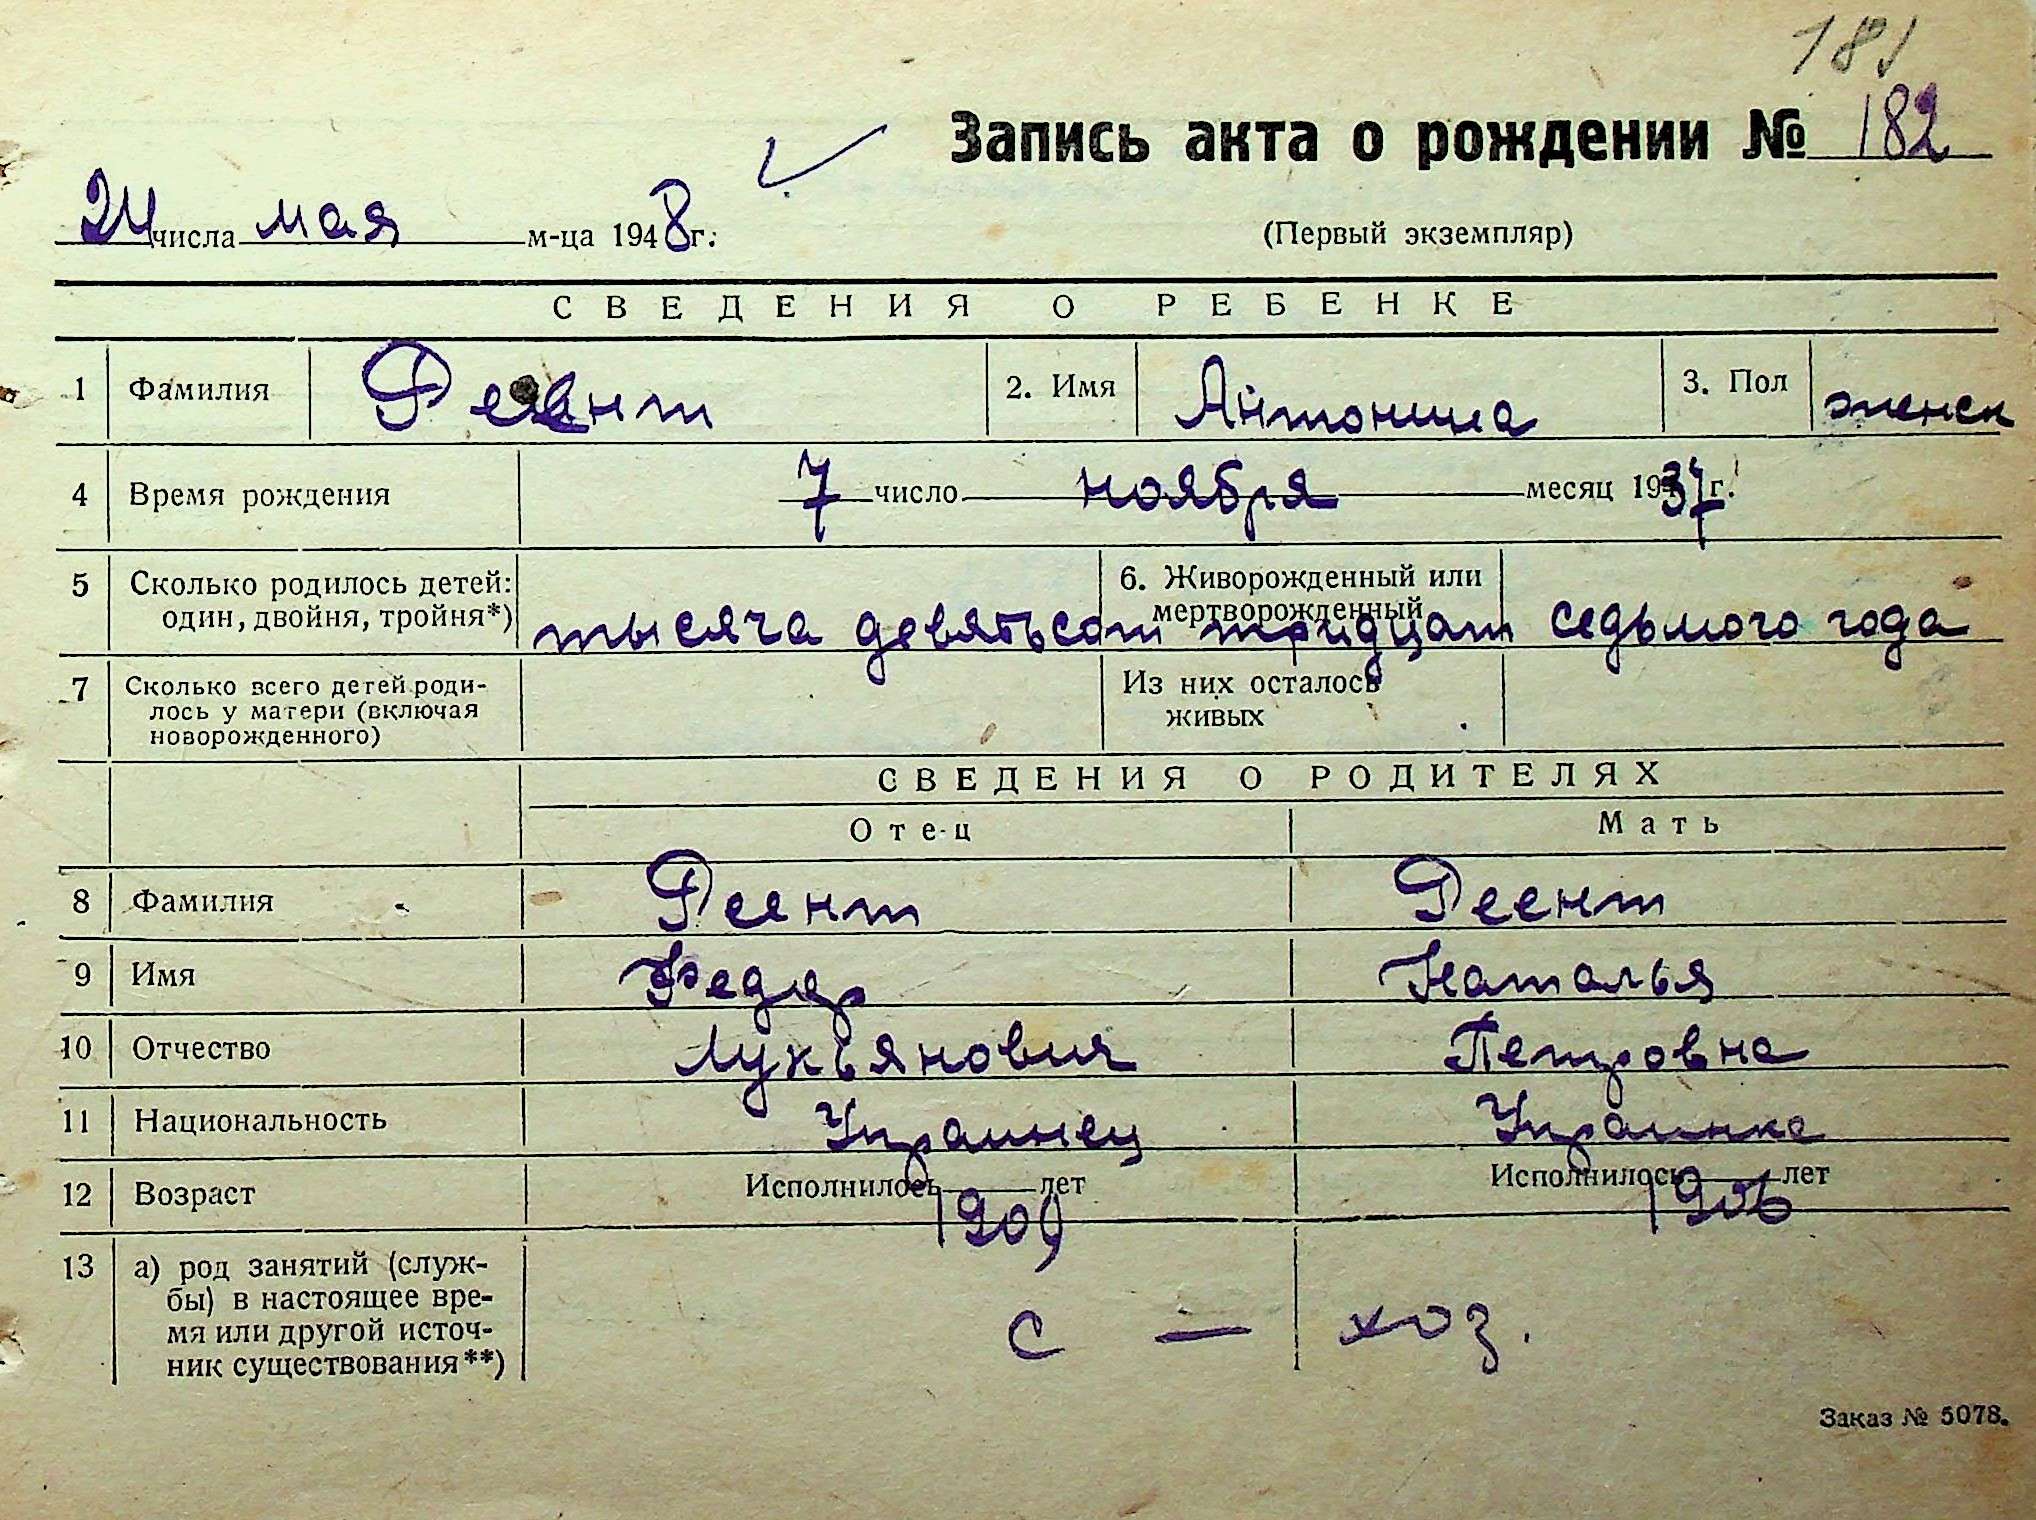 181
Запись акта о рождении № 182
24 числа мая м-ца 1948 г.
(Первый экземпляр)
СВЕДЕНИЯ О РЕБЕНКЕ
1 Фамилия Деент 2. Имя Антонина 3. Пол женск
4 Время рождения 7 число ноября месяц 1937 г.
5 Сколько родилось детей: 6. Живорожденный или
один, двойня, тройня*) мертворожденный
тысяча девятьсот тридцат седьмого года
7 Сколько всего детей роди- Из них осталось
лось у матери (включая живых
новорожденного)
СВЕДЕНИЯ О РОДИТЕЛЯХ
Отец Мать
8 Фамилия Деент Деент
9 Имя Федор Наталья
10 Отчество Лукьянович Петровна
11 Национальность Украинец Украинка
12 Возраст Исполнилось лет Исполнилось лет
1909 1906
13 а) род занятий (служ-
бы) в настоящее вре-
мя или другой источ- с — хоз.
ник существования**)
Заказ № 5078.